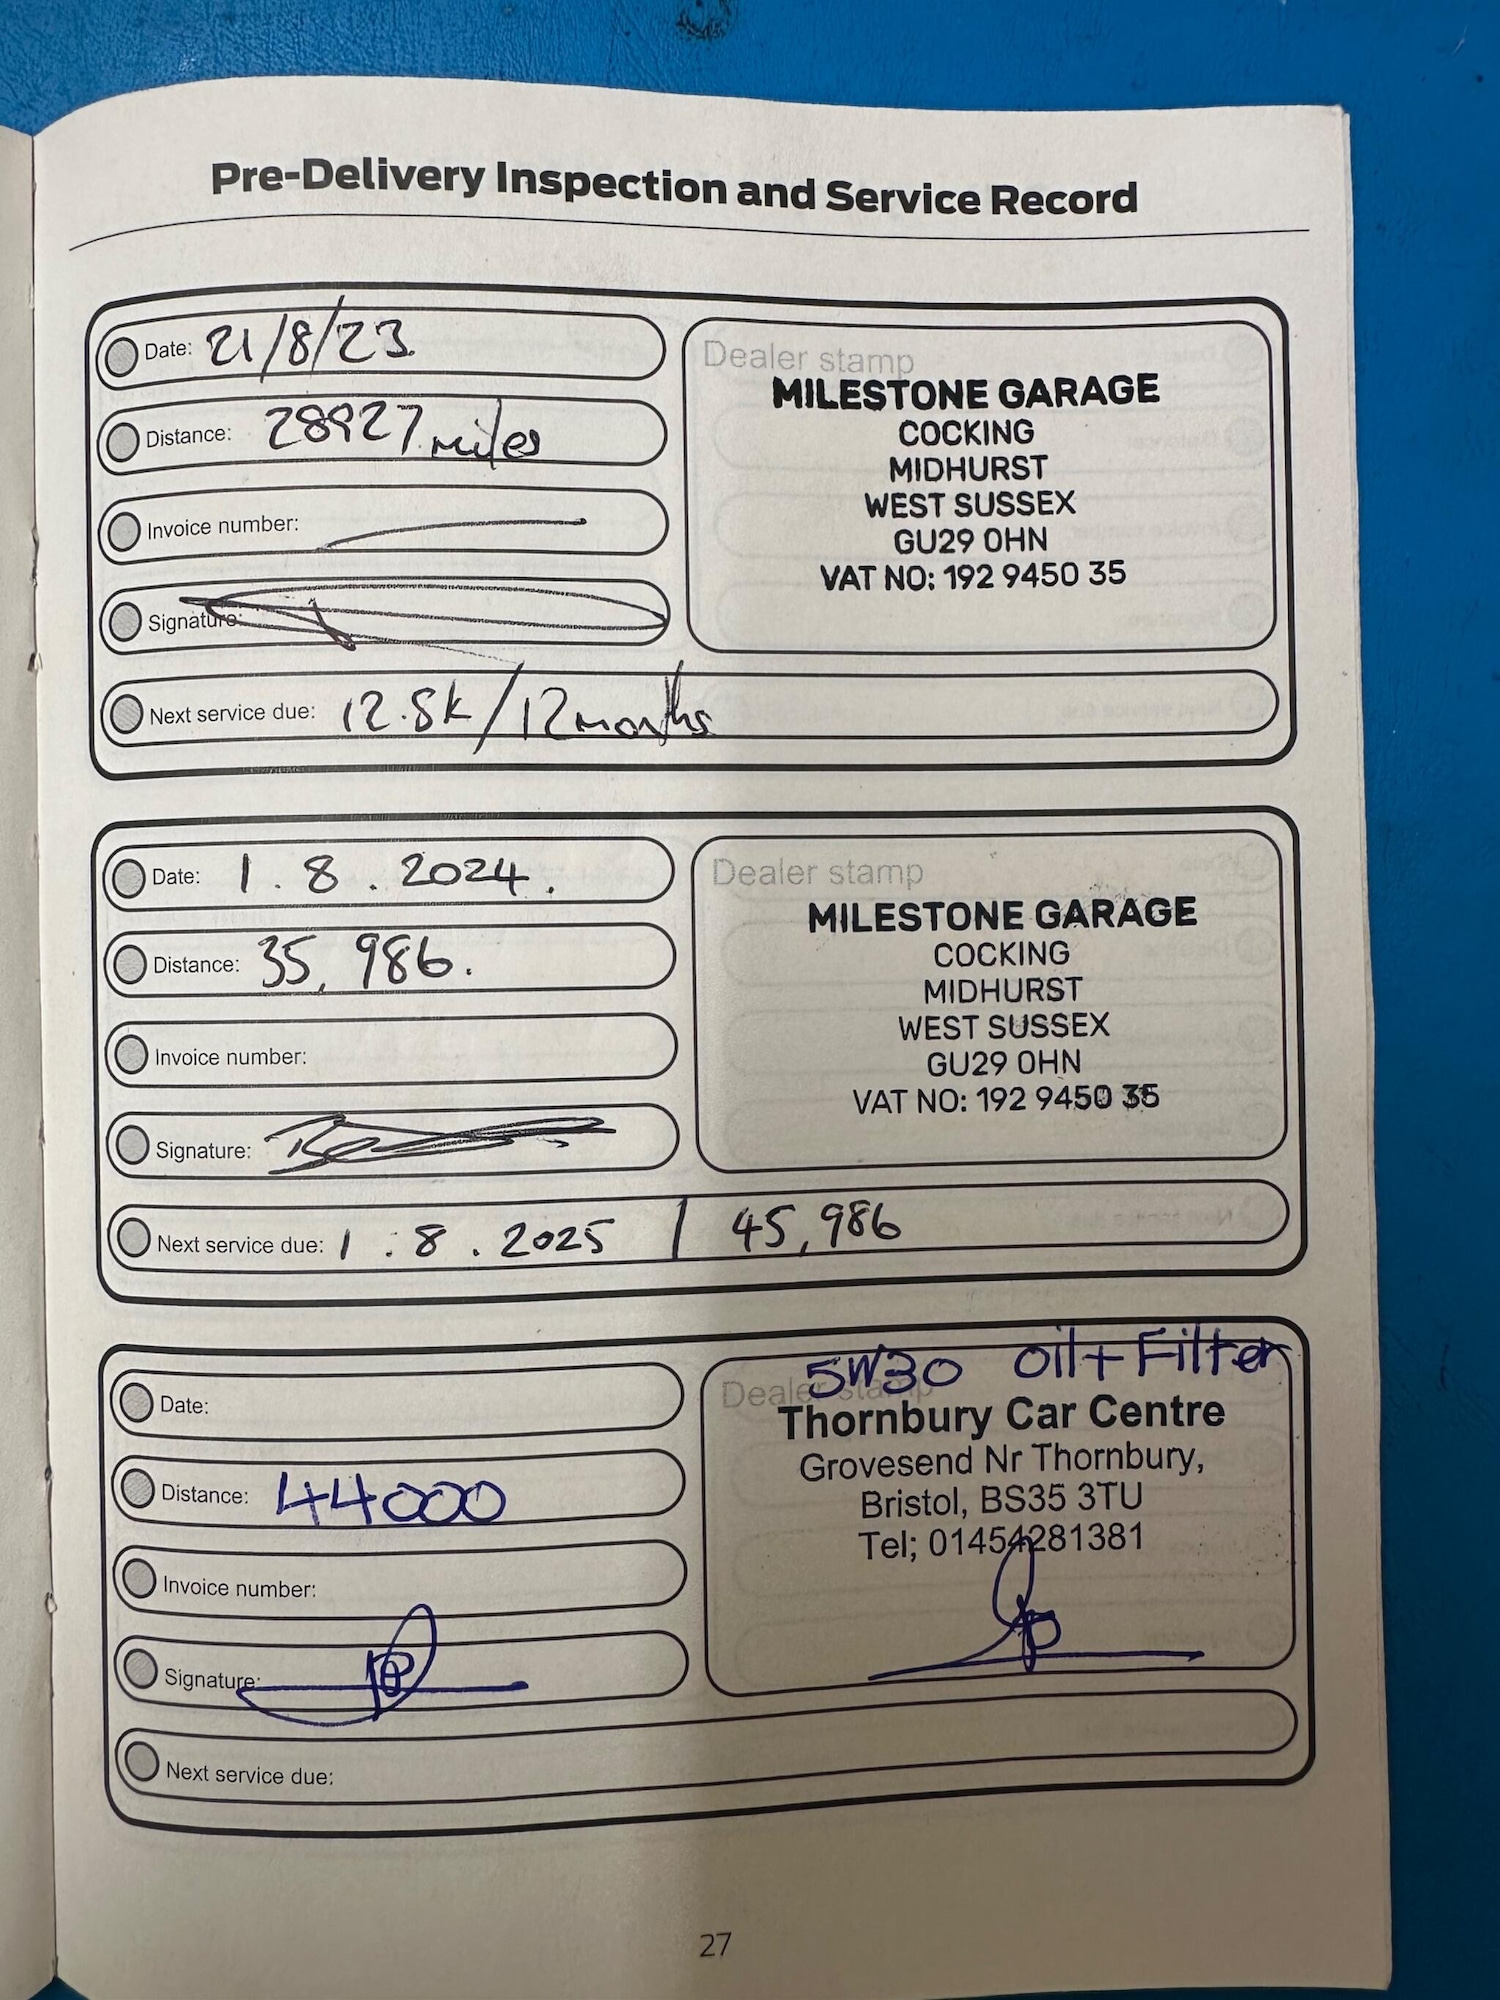 Pre-Delivery Inspection and Service Record
Date: 21/8/23
Distance: 28927 miles
Invoice number:
Signature:
Next service due: 12.8k/12months
Dealer stamp
MILESTONE GARAGE
COCKING
MIDHURST
WEST SUSSEX
GU29 0HN
VAT NO: 192 9450 35
Date: 1.8.2024.
Distance: 35,986.
Invoice number:
Signature:
Next service due: 1.8.2025 | 45,986
Dealer stamp
MILESTONE GARAGE
COCKING
MIDHURST
WEST SUSSEX
GU29 0HN
VAT NO: 192 9450 35
Date:
Distance: 44000
Invoice number:
Signature:
Next service due:
5W30 Oil+Filter
Dealer stamp
Thornbury Car Centre
Grovesend Nr Thornbury,
Bristol, BS35 3TU
Tel; 01454281381
27